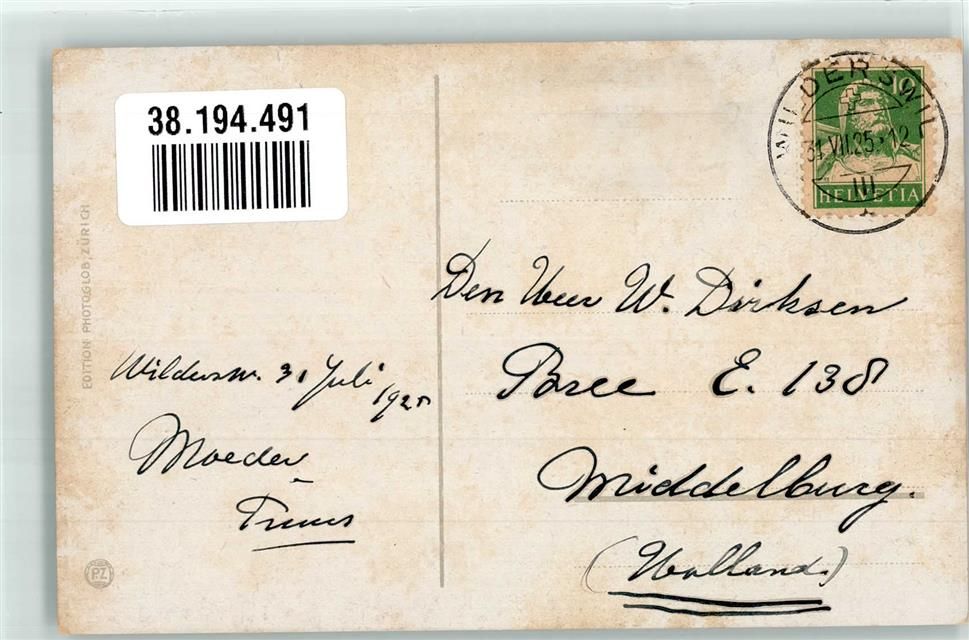 38.194.491
WILDERSWIL
31.VII.25-12
III
10
HELVETIA
EDITION PHOTOGLOB, ZÜRICH
Den Heer W. Dirksen
Bree E. 138
Middelburg.
(Holland.)
Wildersw. 31 Juli
1925
Moeder
Truus
PZ